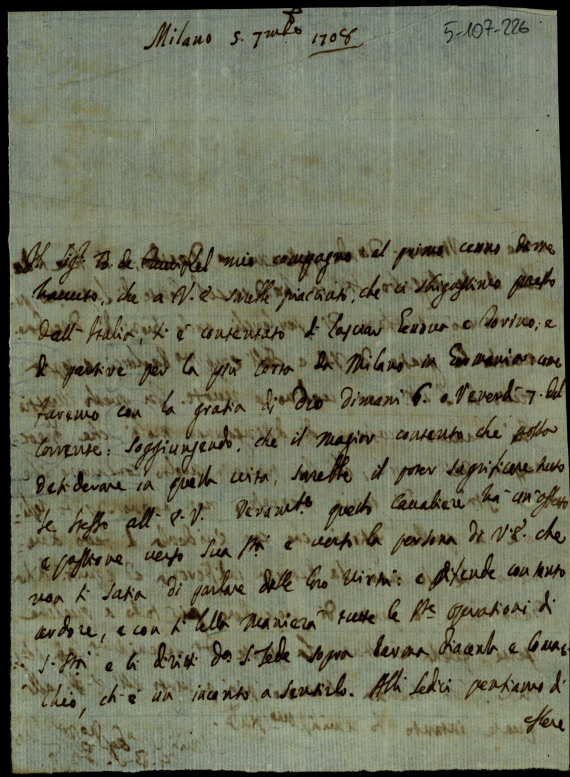 Milano 5. 7mbre 1708
5-107-226
Il Sigr. B. de mio compagno al primo cenno da me
havuto, che a V.E. sarebbe piaciuto, che ci sbrigassimo presto
dall'Italia, si è contentato di lasciar Genova e Torino, e
di partire per la più corta da Milano in Germania come
faremo con la gratia di Dio dimani 6. o Venerdì 7. del
corrente: soggiungendo, che il magior contento che possa
desiderare in questa vita, sarebbe il poter sagrificare tutto
se stesso all'E.V. Veramte questo Cavaliere ha un'affetto
e passione verso Sua Stà e verso la persona di V.E. che
non si satia di parlare delle loro virtù: e difende con tanto
ardore, e con sì bella maniera tutte le Ste operationi di
S. Stà e li diritti da S. Sede sopra Parma Piacenza e Comac-
chio, ch'è un incanto a sentirlo. Alli sedici pensiamo di
essere